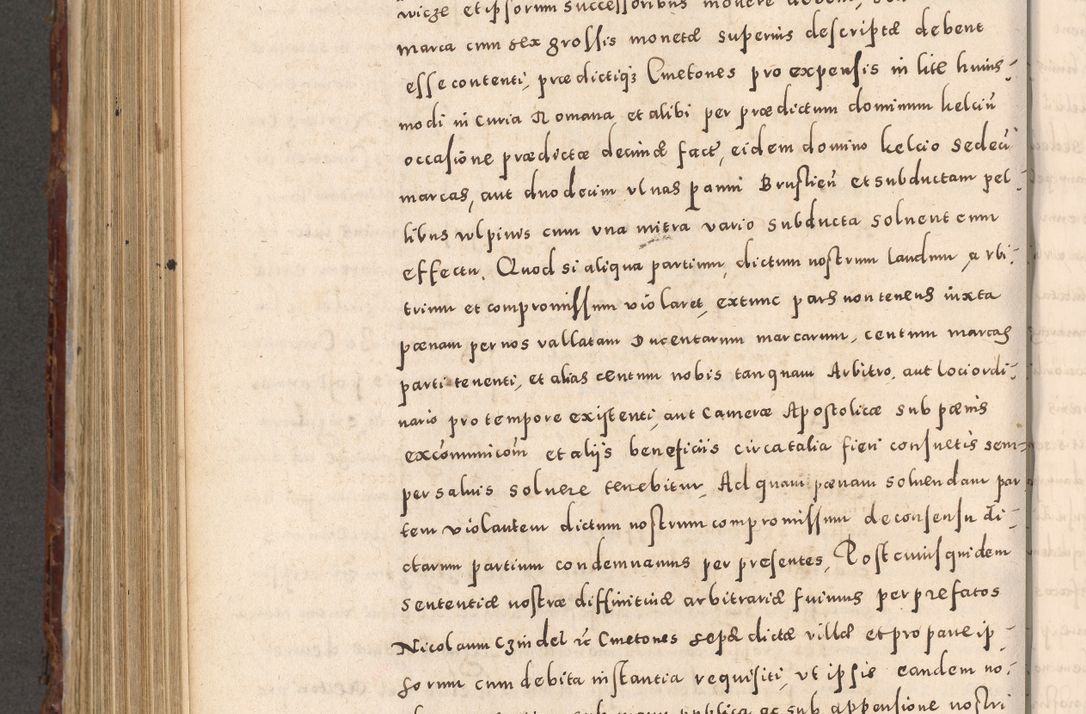 wicze et ipsorum successoribus movere
marca cum sex grossis monetæ superius descriptæ debent
esse contenti, prædictiq; Cmetones pro expensis in lite huius-
modi in Curia Romana et alibi per prædictum dominum kelciū
occasione prædictæ decimæ fact, eidem domino kelcio Sedeci
marcas, aut duodecim vlnas panni Brustien et subductam pel-
libus vulpinis cum vna mitra vario subducta soluent cum
effectu. Quod si aliqua partium, dictum nostrum laudum, arbi-
trium et compromissum violaret, extunc pars non tenens iuxta
pœnam per nos vallatam Ducentarum marcarum, centum marcas
parti tenenti, et alias centum nobis tanquam Arbitro, aut loci ordi-
nario pro tempore existenti, aut Cameræ Apostolicæ sub pœnis
excōmunicoīn et alijs beneficiis circa talia fieri consuetis sem-
per saluis soluere tenebitur, Ad quam pœnam soluendam par
tem violantem dictum nostrum compromissum de consensu di-
ctarum partium condemnamus per presentes, Post cuius quidem
sententiæ nostræ diffinitiuæ arbitrariæ fuimus per prefatos
Nicolaum Czindel et Cmetones sepæ dictæ villæ et pro parte ip-
sorum cum debita instantia requisiti, vt ipsis eandem no-
sub manu publica ac sub appensione nostri